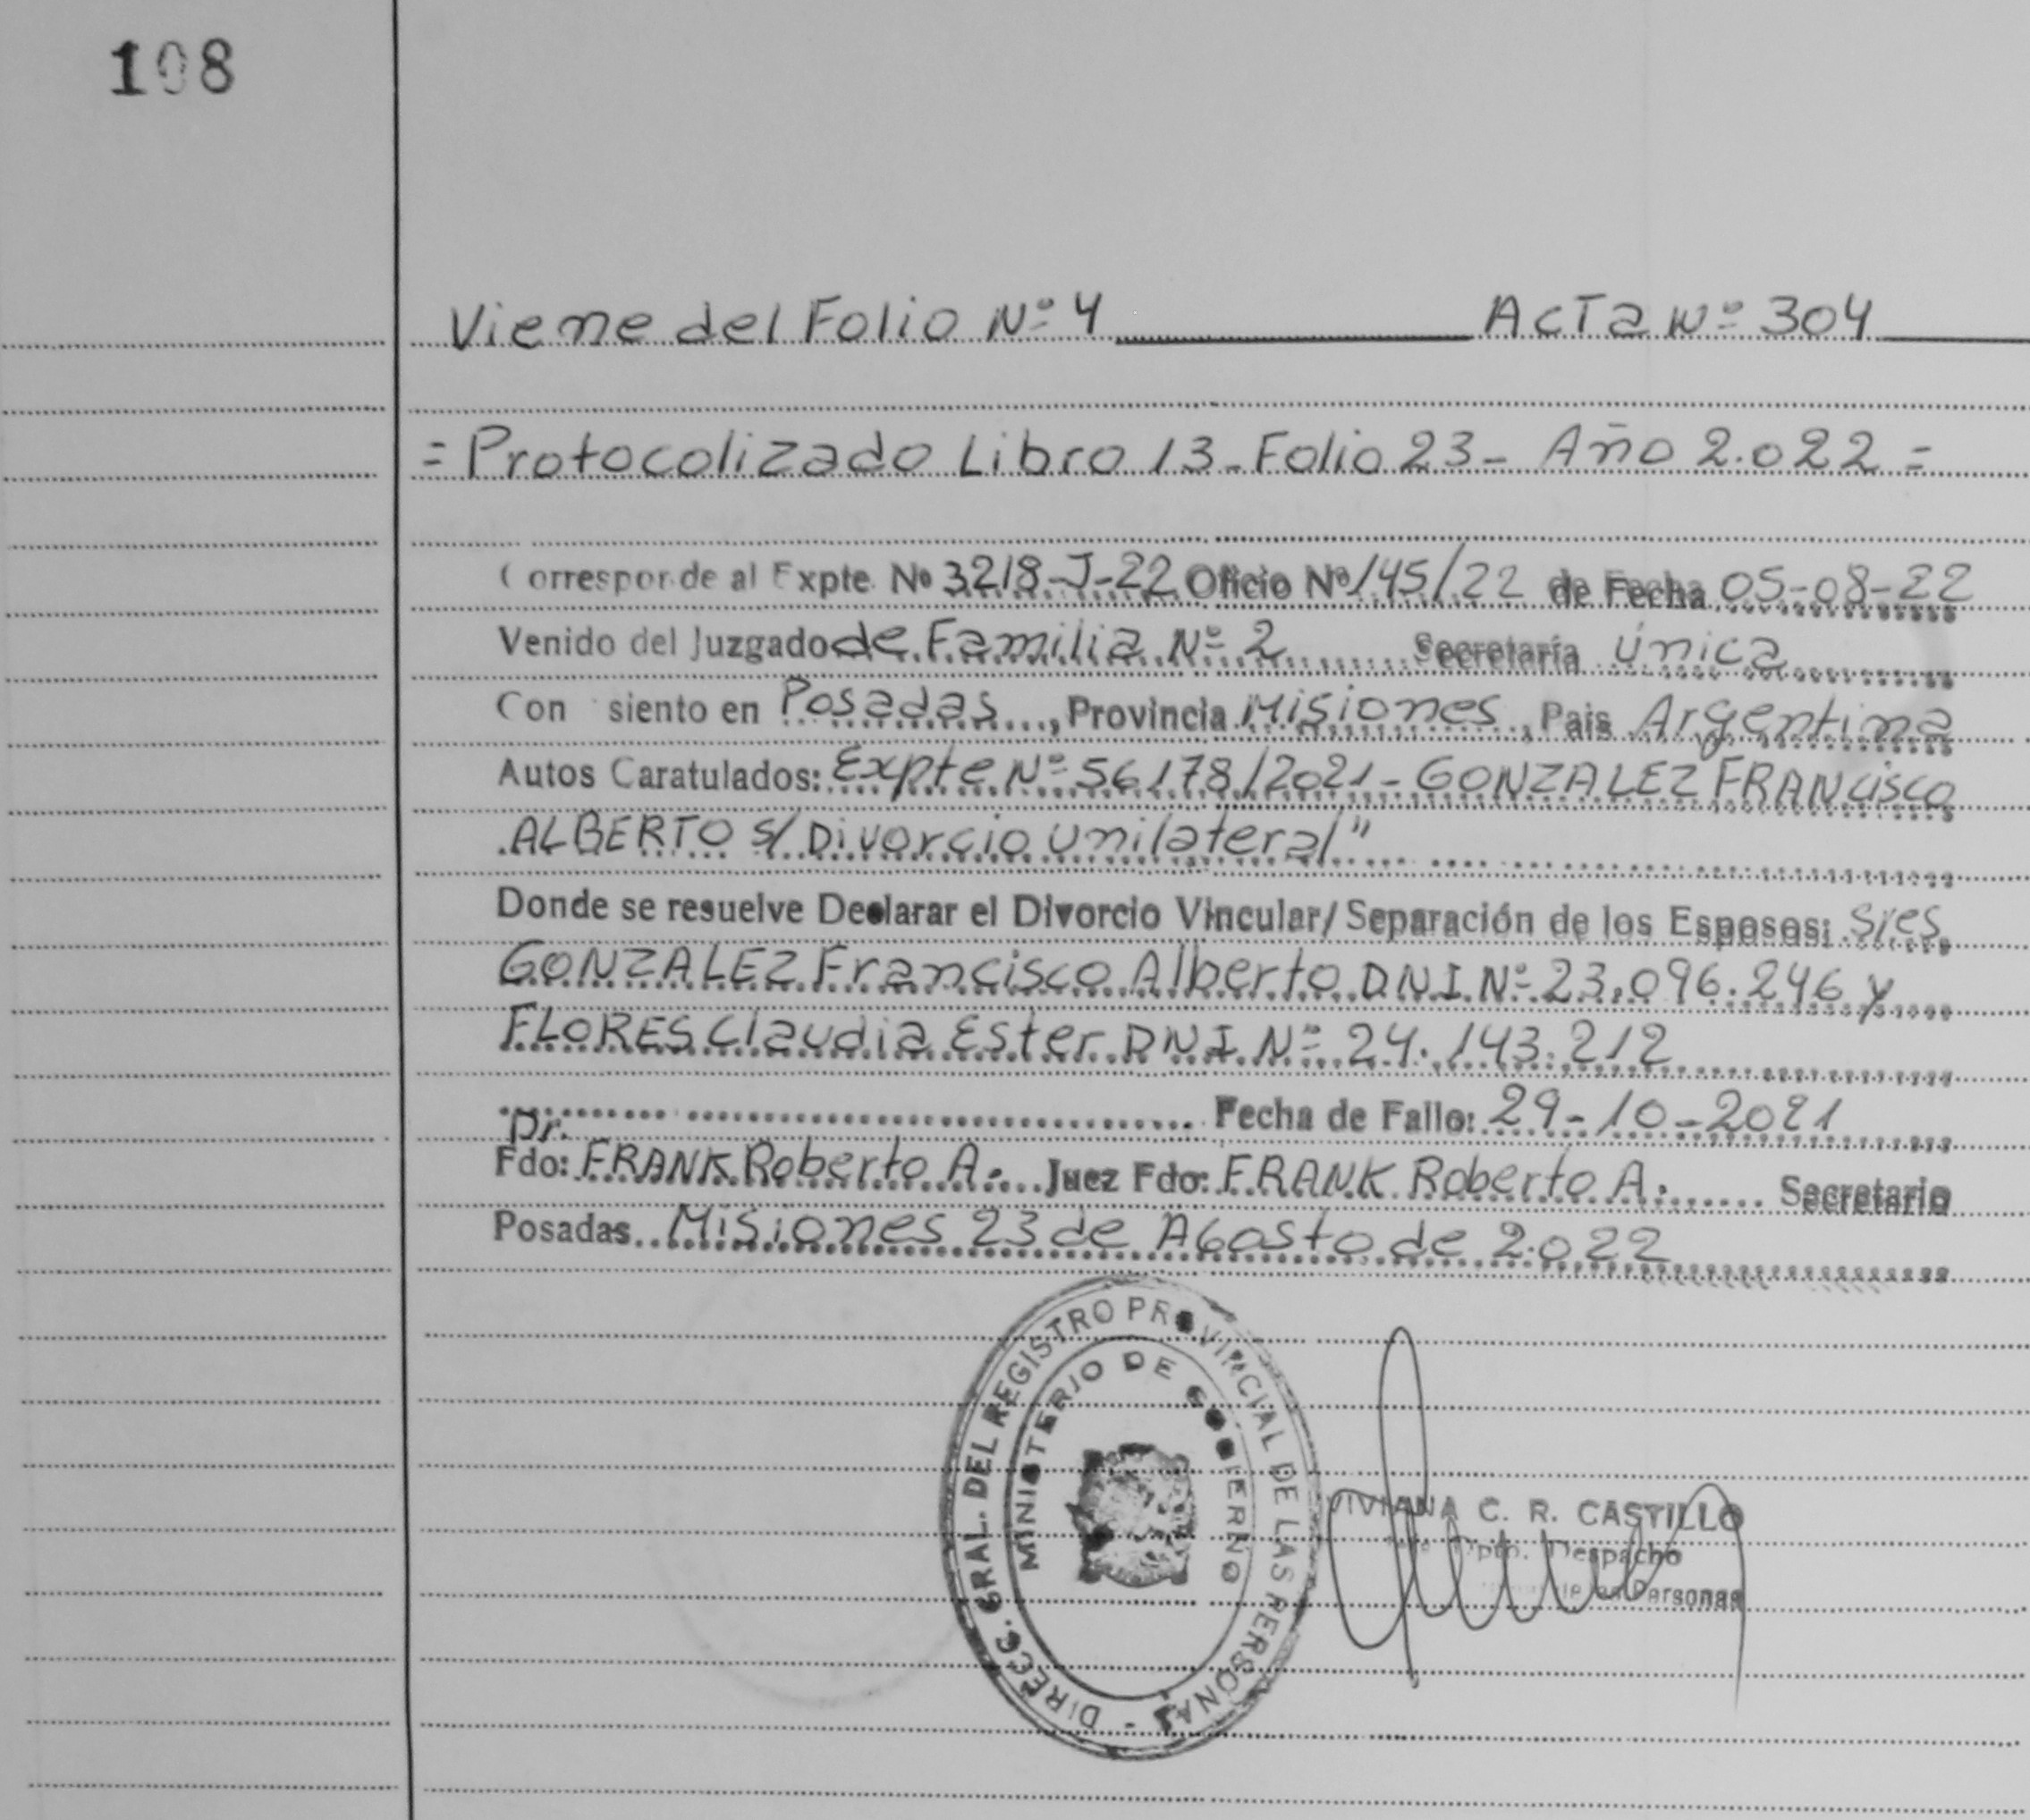 108
Viene del Folio Nº 4 Acta Nº 304
= Protocolizado Libro 13 - Folio 23 - Año 2.022 =
Corresponde al Expte. Nº 3218-J-22 Oficio Nº 145/22 de Fecha 05-08-22
Venido del Juzgado de Familia Nº 2 Secretaría Única
Con siento en Posadas, Provincia Misiones, Pais Argentina
Autos Caratulados: Expte Nº 56178/2021 - GONZALEZ FRANCISCO
ALBERTO s/ Divorcio Unilateral"
Donde se resuelve Declarar el Divorcio Vincular/ Separación de los Esposos: Sres
GONZALEZ Francisco Alberto DNI Nº 23.096.246 y
FLORES Claudia Ester DNI Nº 24.143.212
Fecha de Fallo: 29-10-2021
Dr.
Fdo: FRANK Roberto A. Juez Fdo: FRANK Roberto A. Secretario
Posadas Misiones 23 de Agosto de 2.022
DIRECC. GRAL. DEL REGISTRO PROVINCIAL DE LAS PERSONAS -
MINISTERIO DE GOBIERNO
VIVIANA C. R. CASTILLO
Dpto. Despacho
de las Personas